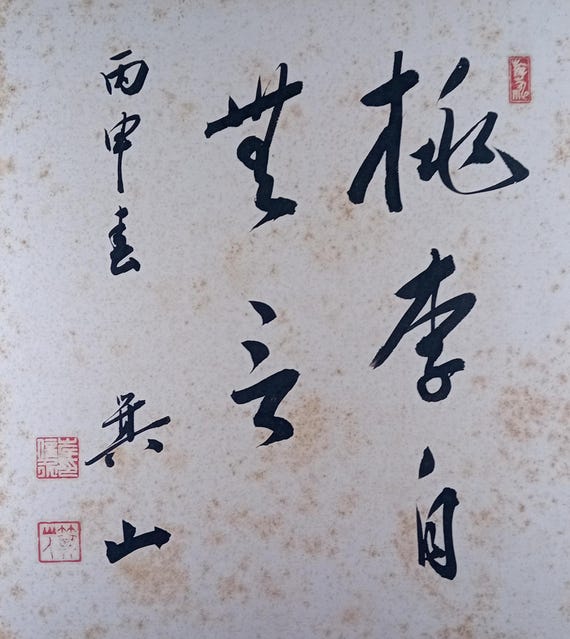 桃李自
無言
丙申春 箕山